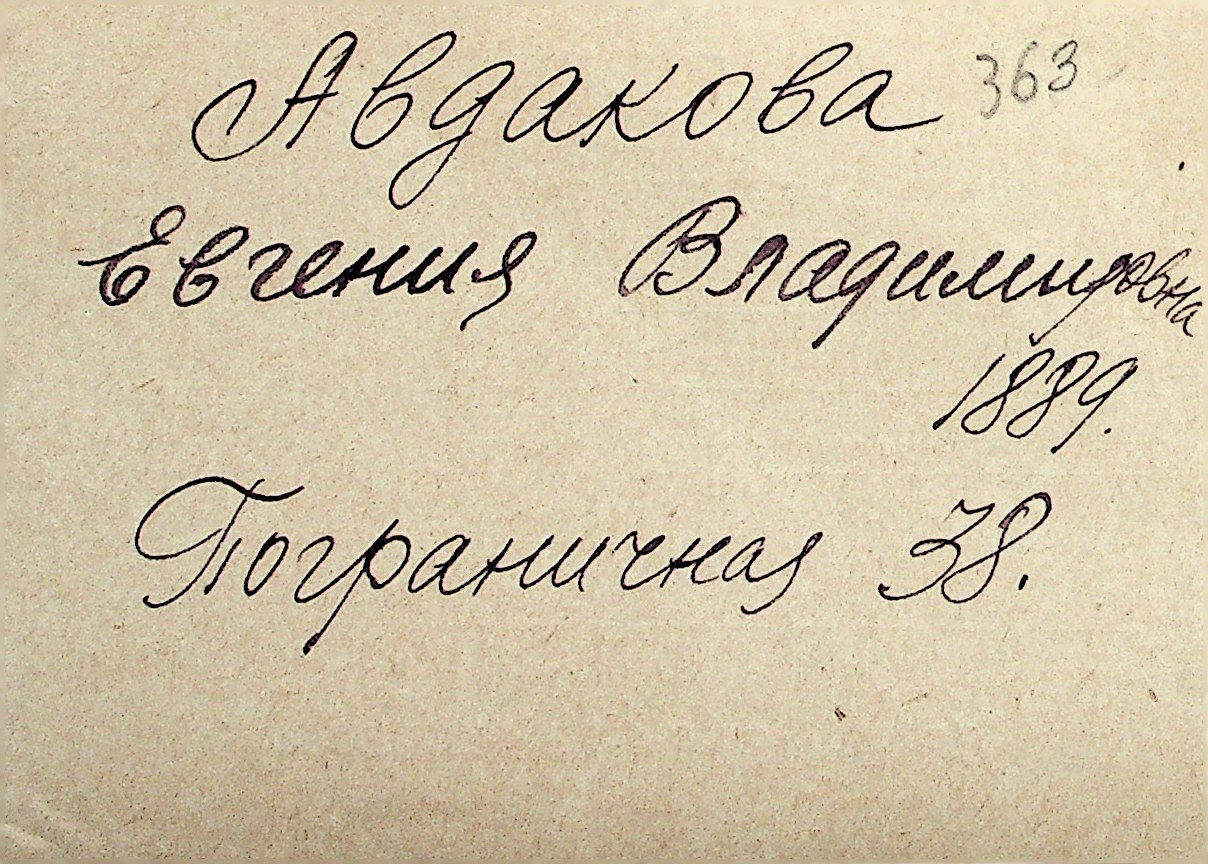 Авдакова 363
Евгения Владимировна
1889.
Пограничная 38.